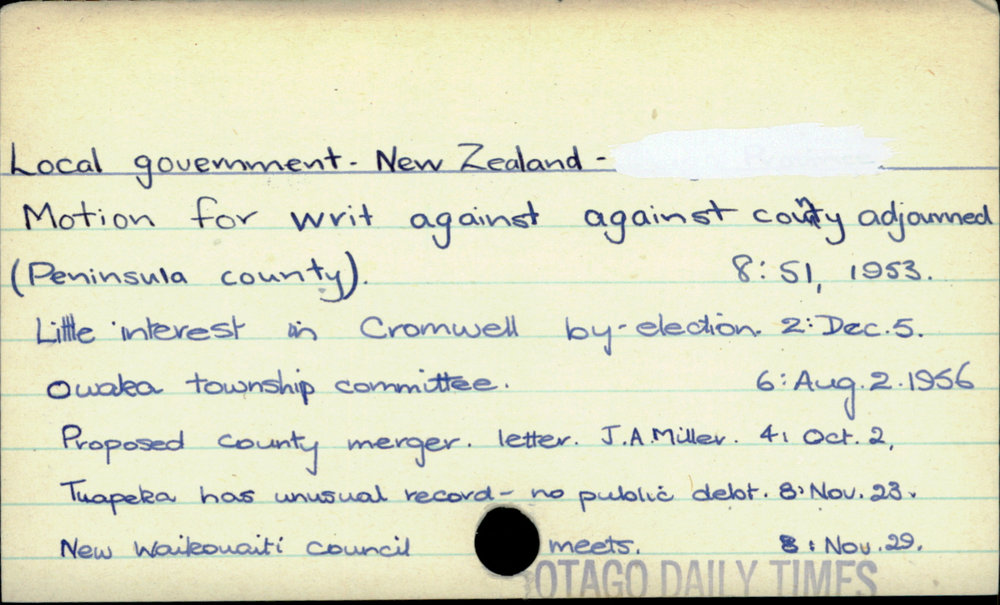 Local government - New Zealand -
Motion for writ against against county adjourned
(Peninsula county). 8: 51, 1953.
Little interest in Cromwell by-election. 2: Dec. 5.
Owaka township committee. 6: Aug. 2. 1956
Proposed county merger. letter. J.A. Miller. 4: Oct. 2,
Tuapeka has unusual record - no public debt. 8: Nov. 23.
New Waikouaiti council meets. 8: Nov. 29.
OTAGO DAILY TIMES